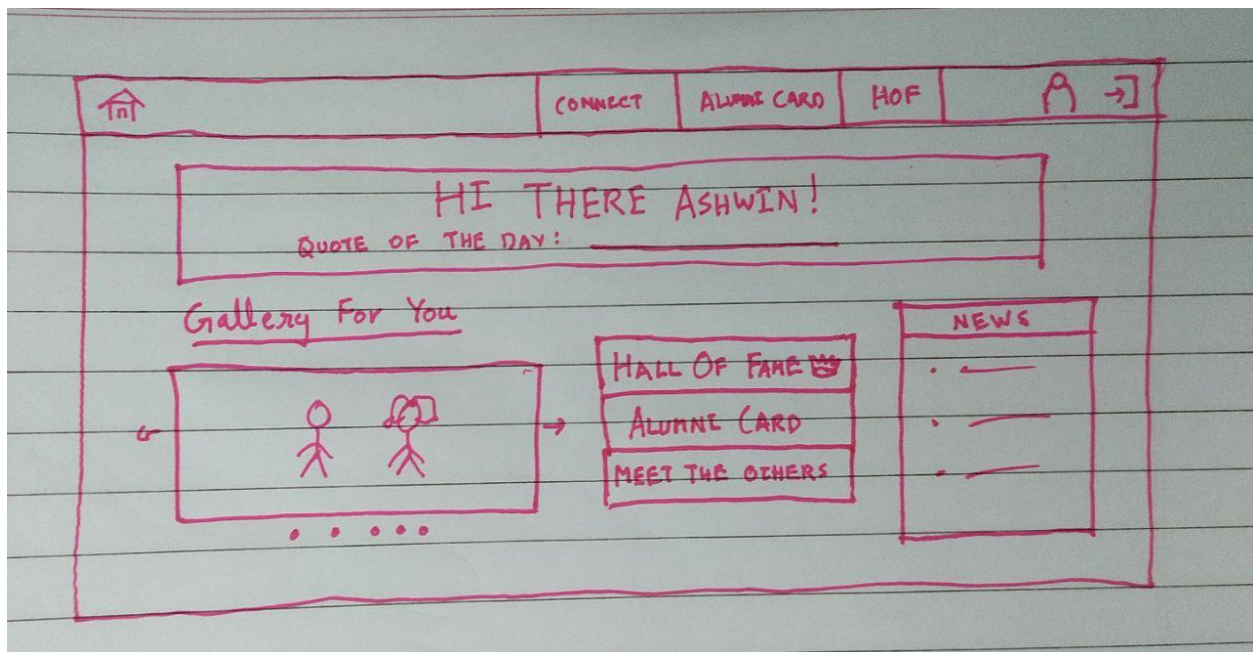 CONNECT
ALUMNI CARD
HOF
HI THERE ASHWIN!
QUOTE OF THE DAY:
Gallery For You
HALL OF FAME
ALUMNI CARD
MEET THE OTHERS
NEWS